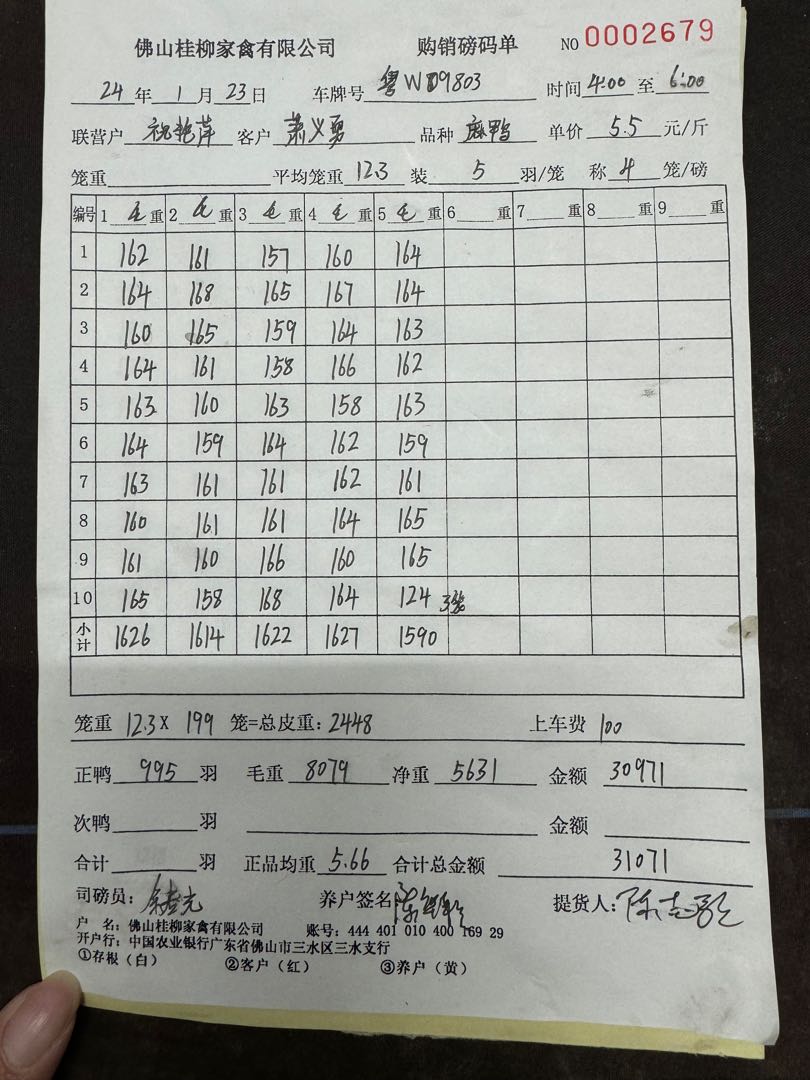 佛山桂柳家禽有限公司 购销磅码单 NO 0002679
24 年 1 月 23 日 车牌号 粤WD9803 时间 4:00 至 6:00
联营户 祝艳萍 客户 萧义勇 品种 麻鸭 单价 5.5 元/斤
笼重 平均笼重 12.3 装 5 羽/笼 称 4 笼/磅
编号 1 毛 重 2 毛 重 3 毛 重 4 毛 重 5 毛 重 6 重 7 重 8 重 9 重
1 162 161 157 160 164
2 164 168 165 167 164
3 160 165 159 164 163
4 164 161 158 166 162
5 163 160 163 158 163
6 164 159 164 162 159
7 163 161 161 162 161
8 160 161 161 164 165
9 161 160 166 160 165
10 165 158 168 164 124 3笼
小计 1626 1614 1622 1627 1590
笼重 12.3 X 199 笼=总皮重: 2448 上车费 100
正鸭 995 羽 毛重 8079 净重 5631 金额 30971
次鸭 羽 金额
合计 羽 正品均重 5.66 合计总金额 31071
司磅员: 养户签名 提货人: 陈志
户 名: 佛山桂柳家禽有限公司 账号: 444 401 010 400 169 29
开户行: 中国农业银行广东省佛山市三水区三水支行
①存根（白） ②客户（红） ③养户（黄）